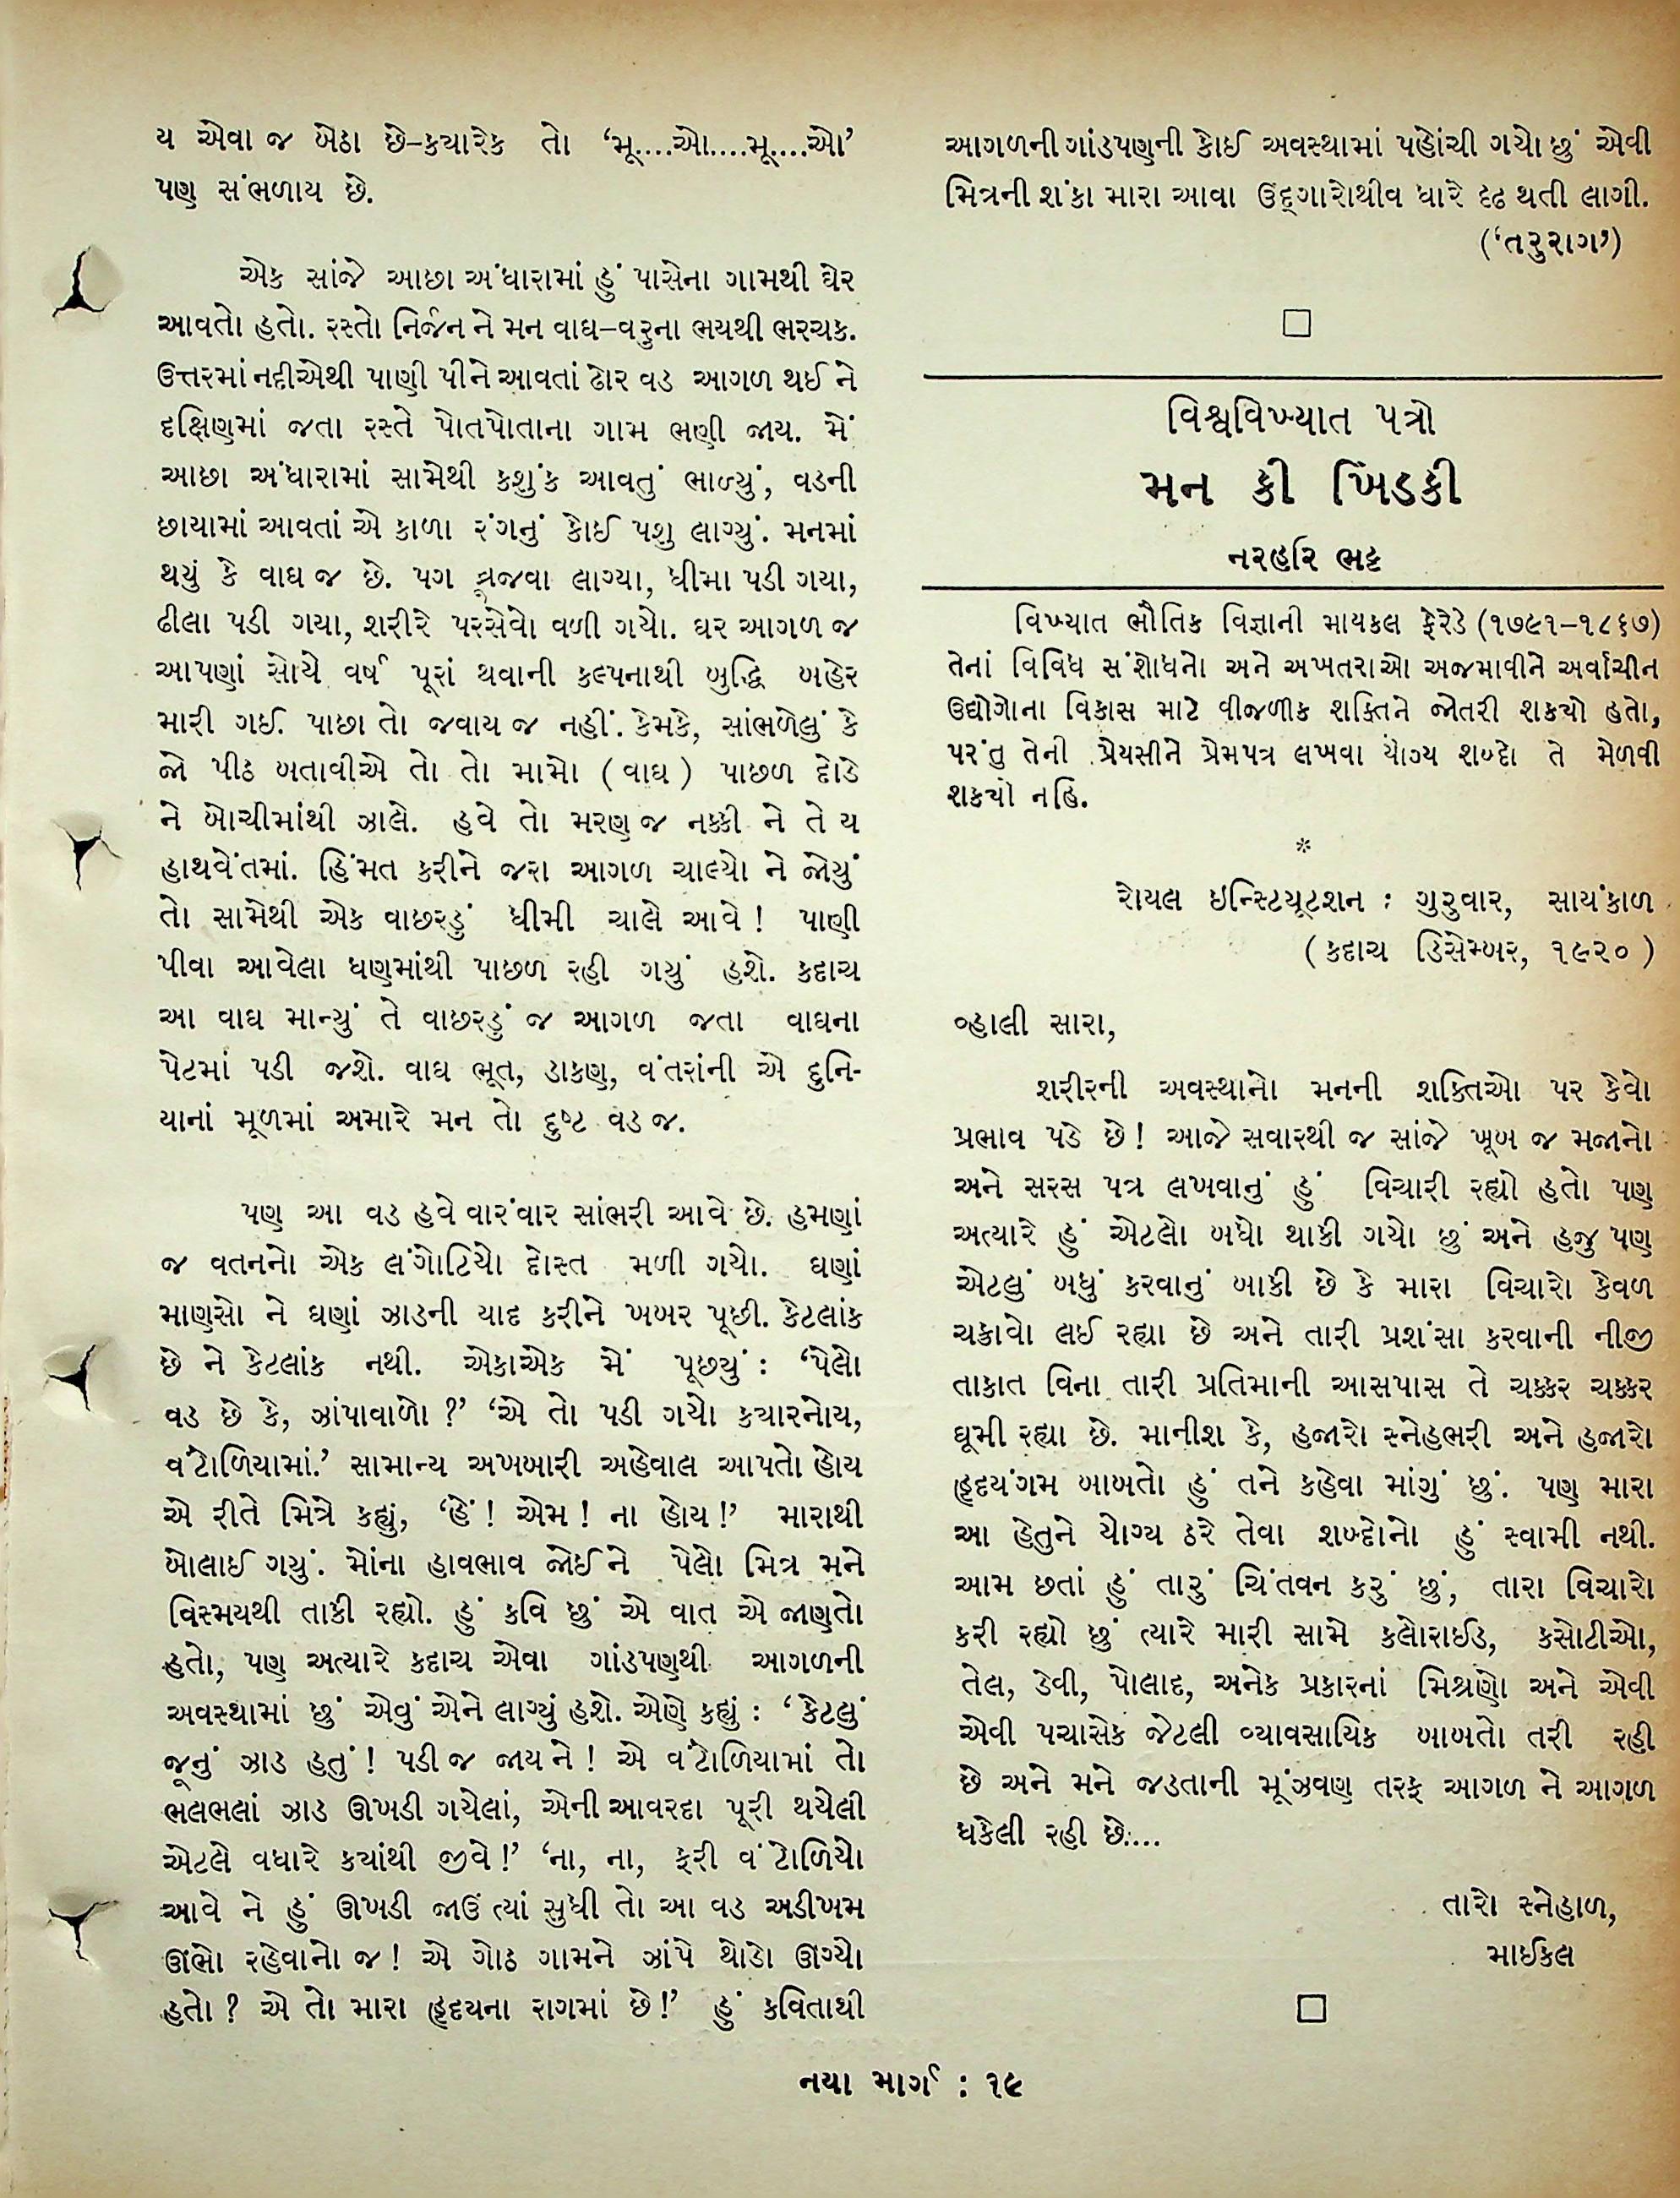 ય એવા જ બેઠા છે–કયારેક તો ‘મૂ....ઓ....મૂ....ઓ’
પણ સંભળાય છે.
એક સાંજે આછા અંધારામાં હું પાસેના ગામથી ઘેર
આવતો હતો. રસ્તો નિર્જન ને મન વાઘ–વરુના ભયથી ભરચક.
ઉત્તરમાં નદીએથી પાણી પીને આવતાં ઢોર વડ આગળ થઈ ને
દક્ષિણમાં જતા રસ્તે પોતપોતાના ગામ ભણી જાય. મેં
આછા અંધારામાં સામેથી કશુંક આવતું ભાળ્યું, વડની
છાયામાં આવતાં એ કાળા રંગનું કોઈ પશુ લાગ્યું. મનમાં
થયું કે વાઘ જ છે. પગ ત્રૂજવા લાગ્યા, ધીમા પડી ગયા,
ઢીલા પડી ગયા, શરીરે પરસેવો વળી ગયો. ઘર આગળ જ
આપણાં સોયે વર્ષ પૂરાં થવાની કલ્પનાથી બુદ્ધિ બહેર
મારી ગઈ. પાછા તો જવાય જ નહીં. કેમકે, સાંભળેલું કે
જો પીઠ બતાવીએ તો તો મામો ( વાઘ ) પાછળ દોડે
ને બોચીમાંથી ઝાલે. હવે તો મરણ જ નક્કી ને તે ય
હાથવેંતમાં. હિંમત કરીને જરા આગળ ચાલ્યો ને જોયું
તો સામેથી એક વાછરડું ધીમી ચાલે આવે ! પાણી
પીવા આવેલા ધણમાંથી પાછળ રહી ગયું હશે. કદાચ
આ વાઘ માન્યું તે વાછરડું જ આગળ જતા વાઘના
પેટમાં પડી જશે. વાઘ ભૂત, ડાકણ, વંતરાંની એ દુનિ-
યાનાં મૂળમાં અમારે મન તો દુષ્ટ વડ જ.
પણ આ વડ હવે વારંવાર સાંભરી આવે છે. હમણાં
જ વતનનો એક લંગોટિયો દોસ્ત મળી ગયો. ઘણાં
માણસો ને ઘણાં ઝાડની યાદ કરીને ખબર પૂછી. કેટલાંક
છે ને કેટલાંક નથી. એકાએક મેં પૂછયું : ‘પેલો
વડ છે કે, ઝાંપાવાળો ?’ ‘એ તો પડી ગયો કયારનોય,
વંટોળિયામાં.’ સામાન્ય અખબારી અહેવાલ આપતો હોય
એ રીતે મિત્રે કહ્યું, ‘હેં ! એમ ! ના હોય !’ મારાથી
બોલાઈ ગયું. મોંના હાવભાવ જોઈ ને પેલો મિત્ર મને
વિસ્મયથી તાકી રહ્યો. હું કવિ છું એ વાત એ જાણતો
હતો, પણ અત્યારે કદાચ એવા ગાંડપણથી આગળની
અવસ્થામાં છું એવું એને લાગ્યું હશે. એણે કહ્યું : ‘ કેટલું
જૂનું ઝાડ હતું ! પડી જ જાય ને ! એ વંટોળિયામાં તો
ભલભલાં ઝાડ ઊખડી ગયેલાં, એની આવરદા પૂરી થયેલી
એટલે વધારે કયાંથી જીવે !’ ‘ના, ના, ફરી વંટોળિયો
આવે ને હું ઊખડી જાઉં ત્યાં સુધી તો આ વડ અડીખમ
ઊભો રહેવાનો જ ! એ ગોઠ ગામને ઝાંપે થોડો ઊગ્યો
હતો ? એ તો મારા હૃદયના રાગમાં છે !’ હું કવિતાથી
આગળની ગાંડપણની કોઈ અવસ્થામાં પહોંચી ગયો છું એવી
મિત્રની શંકા મારા આવા ઉદ્‌ગારોથીવ ધારે દૃઢ થતી લાગી.
(‘તરુરાગ’)
વિશ્વવિખ્યાત પત્રો
મન કી ખિડકી
નરહરિ ભટ્ટ
વિખ્યાત ભૌતિક વિજ્ઞાની માયકલ ફેરેડે (૧૭૯૧–૧૮૬૭)
તેનાં વિવિધ સંશોધનો અને અખતરાઓ અજમાવીને અર્વાચીન
ઉદ્યોગોના વિકાસ માટે વીજળીક શક્તિને જોતરી શકયો હતો,
પરંતુ તેની પ્રેયસીને પ્રેમપત્ર લખવા યોગ્ય શબ્દો તે મેળવી
શકયો નહિ.
*
રોયલ ઇન્સ્ટિયૂટશન : ગુરુવાર, સાયંકાળ
( કદાચ ડિસેમ્બર, ૧૯૨૦ )
વ્હાલી સારા,
શરીરની અવસ્થાનો મનની શક્તિઓ પર કેવો
પ્રભાવ પડે છે ! આજે સવારથી જ સાંજે ખૂબ જ મજાનો
અને સરસ પત્ર લખવાનું હું વિચારી રહ્યો હતો પણ
અત્યારે હું એટલો બધો થાકી ગયો છું અને હજુ પણ
એટલું બધું કરવાનું બાકી છે કે મારા વિચારો કેવળ
ચકરાવો લઈ રહ્યા છે અને તારી પ્રશંસા કરવાની નીજી
તાકાત વિના તારી પ્રતિમાની આસપાસ તે ચક્કર ચક્કર
ઘૂમી રહ્યા છે. માનીશ કે, હજારો સ્નેહભરી અને હજારો
હૃદયંગમ બાબતો હું તને કહેવા માંગું છું. પણ મારા
આ હેતુને યોગ્ય ઠરે તેવા શબ્દોનો હું સ્વામી નથી.
આમ છતાં હું તારું ચિંતવન કરું છું, તારા વિચારો
કરી રહ્યો છું ત્યારે મારી સામે કલોરાઈડ, કસોટીઓ,
તેલ, ડેવી, પોલાદ, અનેક પ્રકારનાં મિશ્રણો અને એવી
એવી પચાસેક જેટલી વ્યાવસાયિક બાબતો તરી રહી
છે અને મને જડતાની મૂંઝવણ તરફ આગળ ને આગળ
ધકેલી રહી છે....
તારો સ્નેહાળ,
માઈકલ
નયા માર્ગ : ૧૯